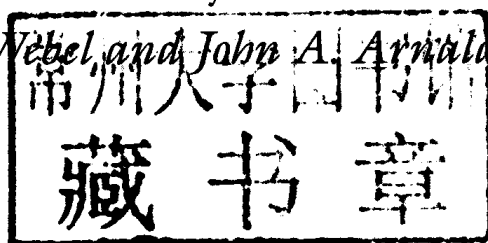 Nebel and John A. Arnald
常州大学图书馆
藏书章